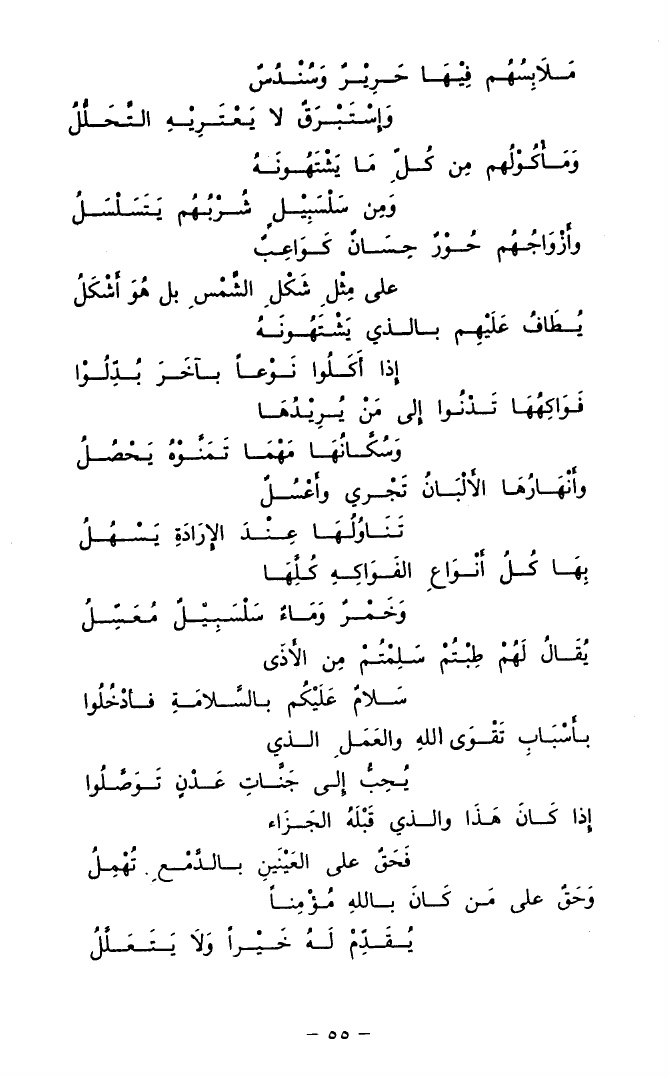 مَلَابِسُهم فِيْهَا حَرِيْرٌ وَسُنْدُسٌ
وَإِسْتَبْرَقٌ لا يَعْتَرِيْهِ التَّحَلُّلُ
وَمَأكُوْلُهم مِن كُلِّ مَا يَشْتَهُونَهُ
وَمِن سَلْسَبِيْلٍ شُرْبُهُم يَتَسَلْسَلُ
وأَزْوَاجُهُم حُوْرٌ حِسَانٌ كَوَاعِبٌ
على مِثْلِ شَكْلِ الشَّمْسِ بل هُوَ أَشْكَلُ
يُطَافُ عَلَيْهِم بالذي يَشْتَهُونَهُ
إذا أَكَلُوا نَوْعاً بآخَرَ بُدِّلُوْا
فَوَاكِهُهَا تَدْنُوا إلى مَنْ يُرِيْدُهَا
وَسُكَّانُهَا مَهْمَا تَمَنَّوْهُ يَحْصُلُ
وأَنْهَارُهَا الأَلْبَانُ تَجْرِي وأَعْسُلٌ
تَنَاوُلُهَا عِنْدَ الإِرَادَةِ يَسْهُلُ
بِهَا كُلُّ أَنْوَاعِ الفَوَاكِهِ كُلِّهَا
وَخَمْرٌ وَمَاءٌ سَلْسَبِيْلٌ مُعَسَّلُ
يُقَالُ لَهُمْ طِبْتُمْ سَلِمْتُمْ مِن الأَذَى
سَلامٌ عَلَيْكُم بالسَّلامَةِ فادْخُلُوا
بأَسْبَابِ تَقْوَى اللهِ والعَمَلِ الذي
يُحِبُّ إلى جَنَّاتِ عَدْنٍ تَوَصَّلُوا
إذا كَانَ هَذَا والذي قَبْلَهُ الجَزَاء
فَحَقٌّ على العَيْنَينِ بالدَّمْعِ تُهْمِلُ
وَحَقٌّ على مَن كَانَ باللهِ مُؤْمِناً
يُقَدِّمْ لَهُ خَيْراً وَلاَ يَتَعَلَّلُ
– ٥٥ –